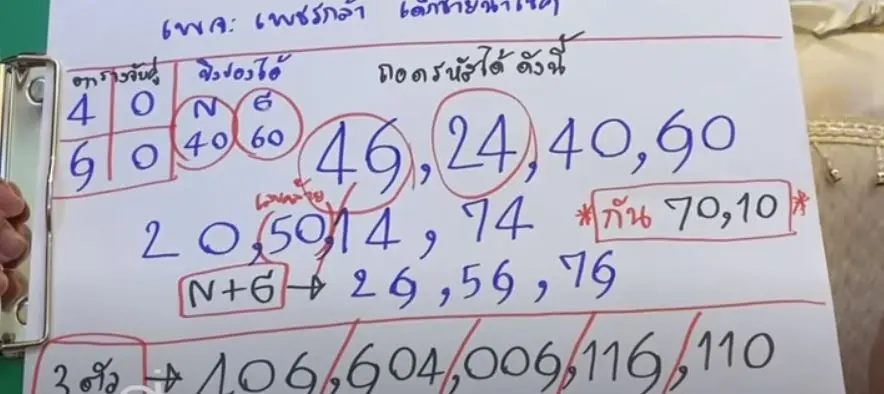 เพจ: เพชรกล้า เด็กชายนำโชค
ตารางจับคู่ ชิงร่องได้ ถอดรหัสได้ ดังนี้
4 0 N G
6 0 40 60 46, 24, 40, 60
20, 50, 14, 74 *กัน 70,10*
N+G → 26, 56, 76
3 ตัว → 406/604/006/116/110